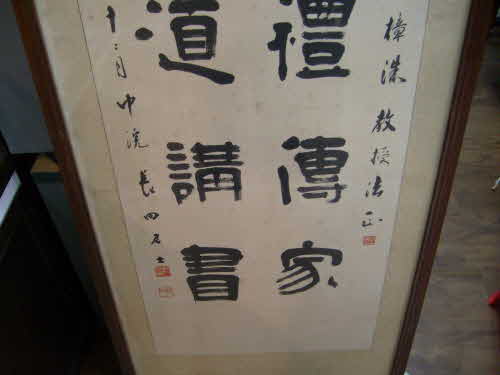 樟洙教授法正
禮傳家
道講書
十二月中浣 長田居士